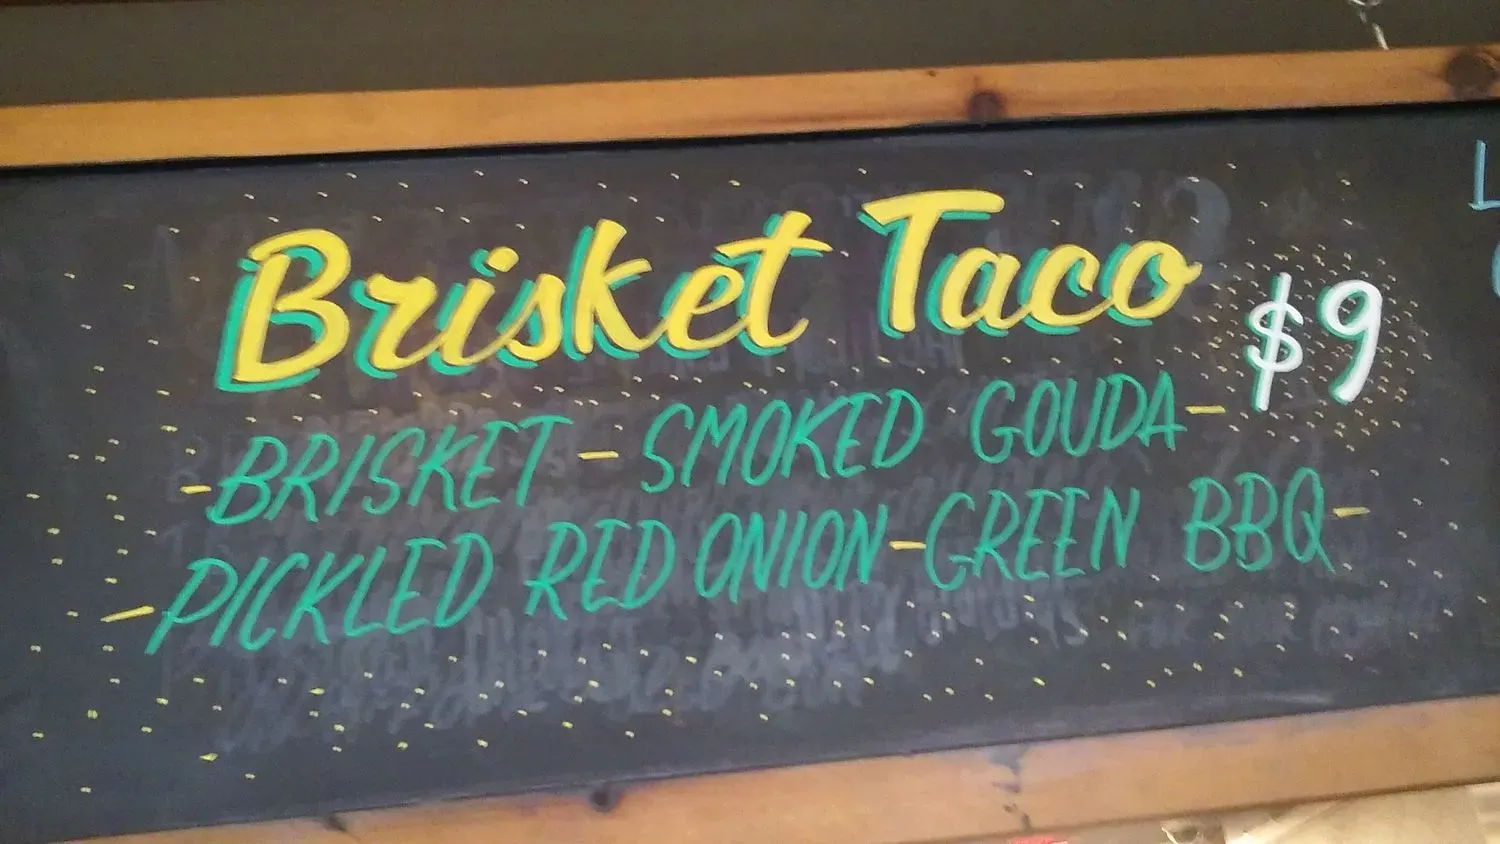 Brisket Taco $9
-BRISKET-SMOKED GOUDA-
-PICKLED RED ONION-GREEN BBQ-